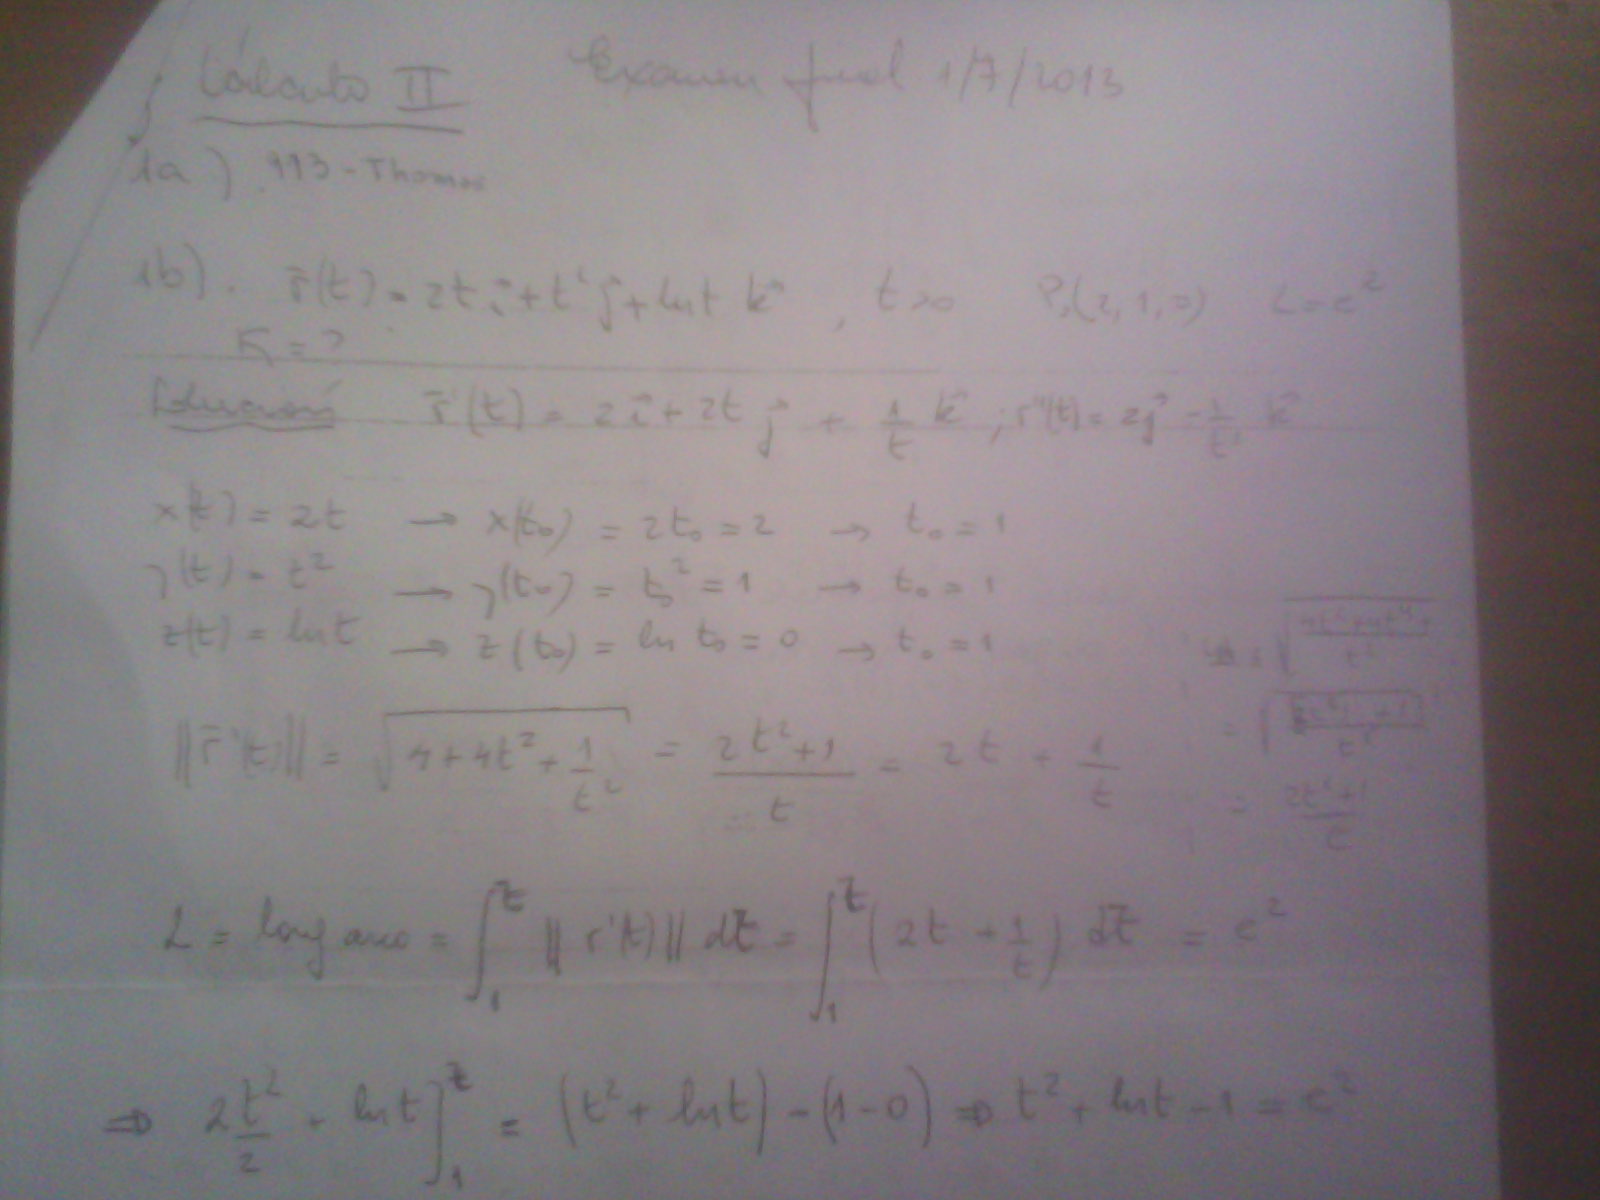 Cálculo II Examen final 1/7/2013
1a) . 993 - Thomas
1b). r̄(t) = 2t i⃗ + t² j⃗ + ln t k⃗ , t>0 P₀(2,1,0) L = e²
K = ?
Solución r̄'(t) = 2 i⃗ + 2t j⃗ + 1/t k⃗ ; r''(t) = 2j⃗ - 1/t² k⃗
x(t) = 2t → x(t₀) = 2t₀ = 2 → t₀ = 1
y(t) = t² → y(t₀) = t₀² = 1 → t₀ = 1
z(t) = ln t → z(t₀) = ln t₀ = 0 → t₀ = 1
||r̄'(t)|| = √(4+4t²+1/t²) = (2t²+1)/t = 2t + 1/t
= (2t²+1)/t
L = long arco = ∫₁ᵗ || r'(t) || dt = ∫₁ᵗ (2t + 1/t) dt = e²
⇒ 2 t²/2 + ln t ]₁ᵗ = (t² + ln t) - (1-0) ⇒ t² + ln t - 1 = e²